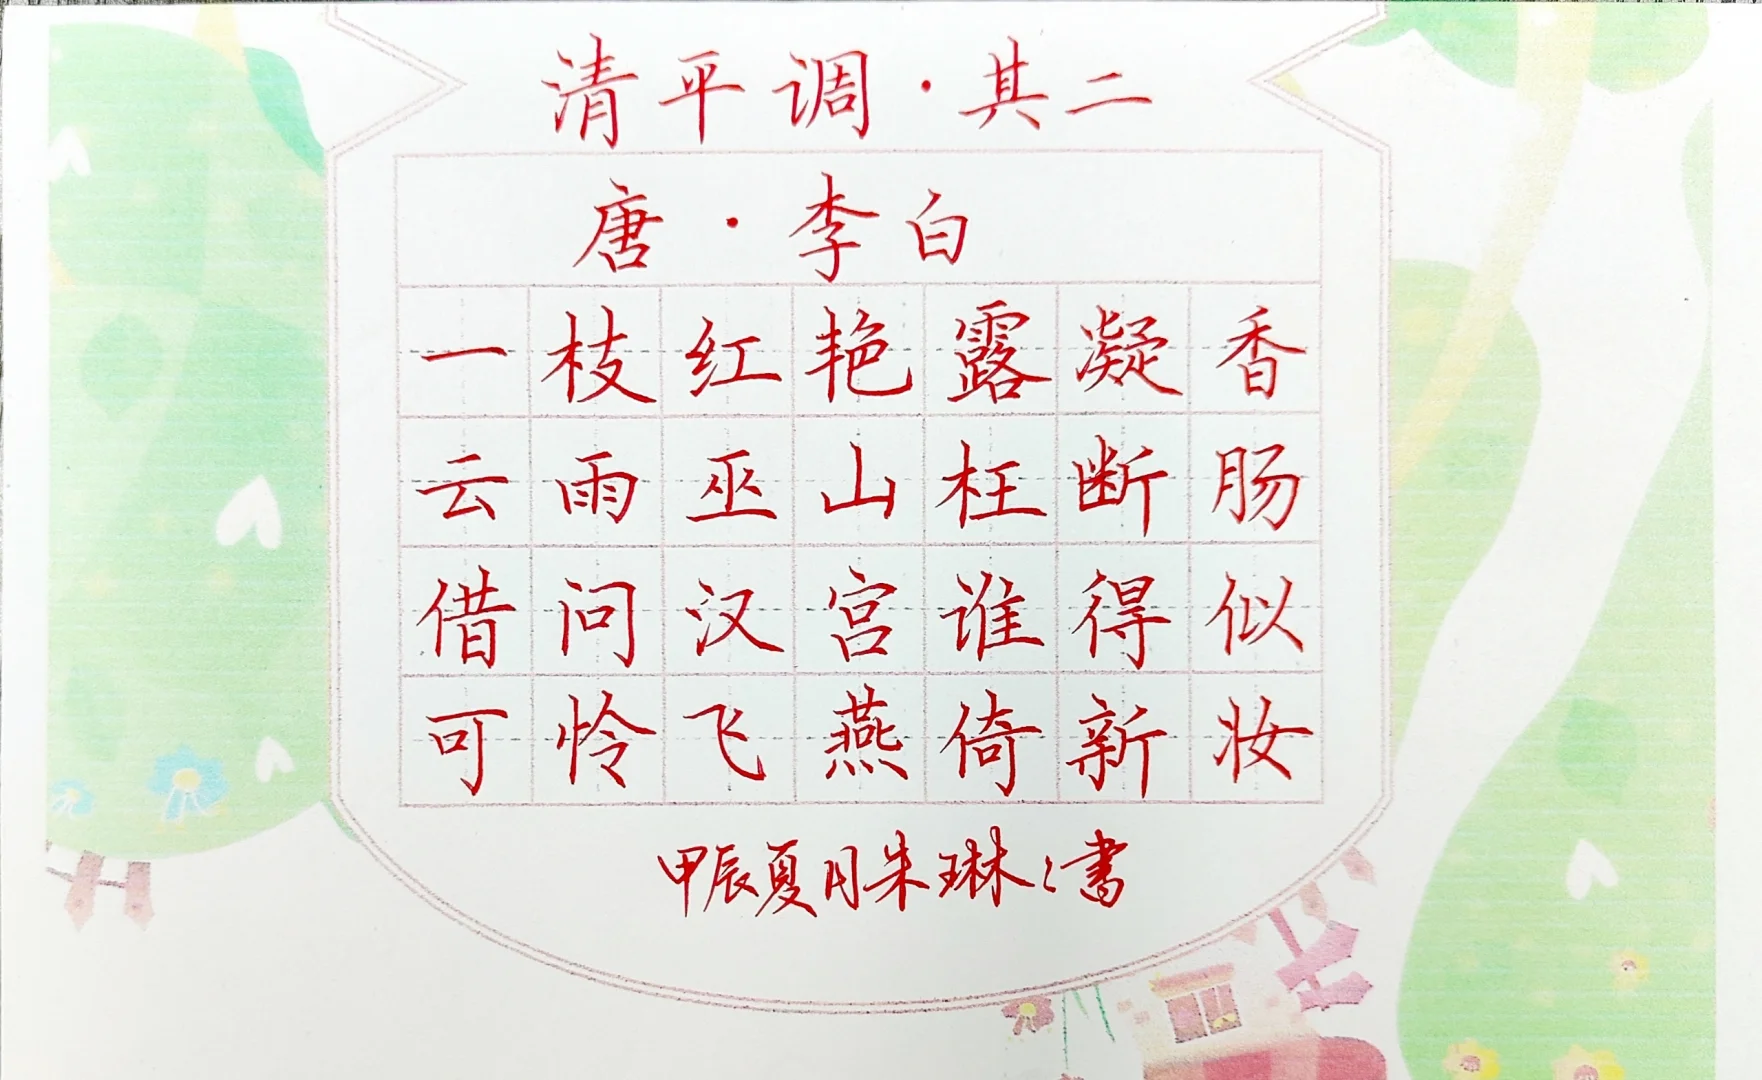 清平调·其二
唐·李白
一枝红艳露凝香
云雨巫山枉断肠
借问汉宫谁得似
可怜飞燕倚新妆
甲辰夏月朱琳琳书